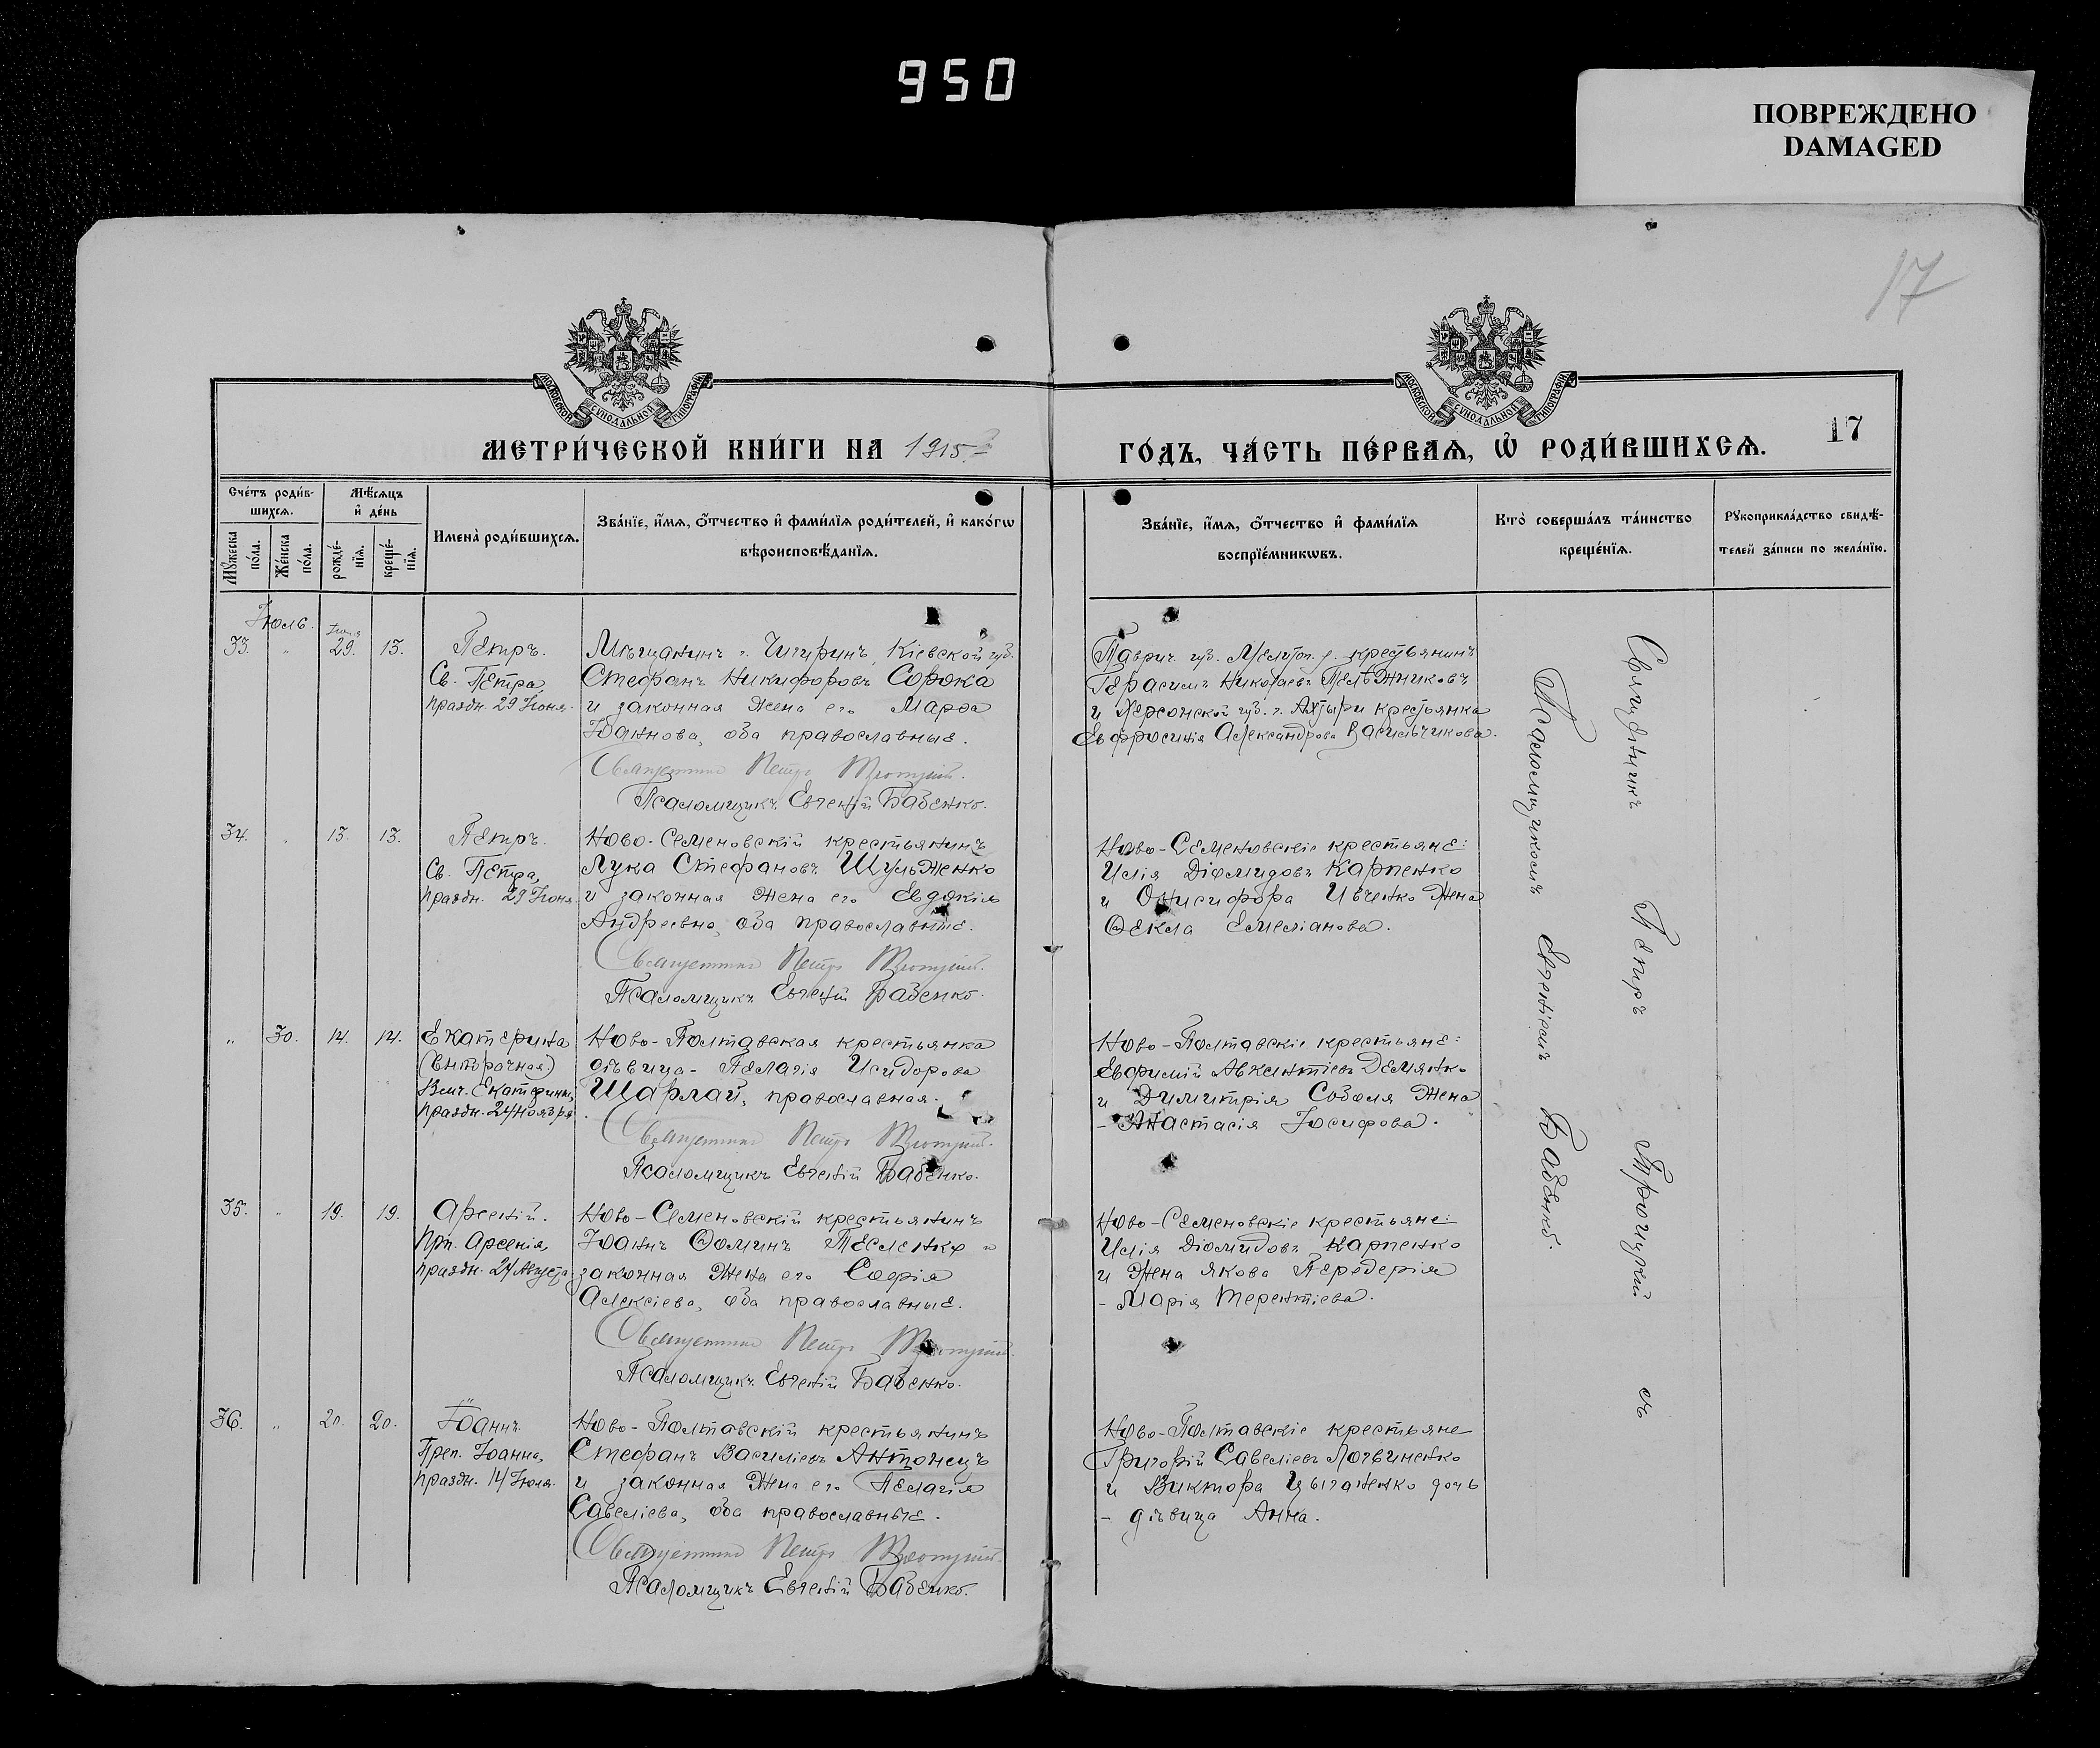 950
ПОВРЕЖДЕНО
DAMAGED
17
МОСКОВСКОЙ СѴНОДАЛЬНОЙ ТИПОГРАФІИ
МОСКОВСКОЙ СѴНОДАЛЬНОЙ ТИПОГРАФІИ
МЕТРИ́ЧЕСКОЙ КНИ́ГИ НА 1915
ГО́ДЪ, ЧА́СТЬ ПЕ́РВАЯ, Ѡ҆ РОДИ́ВШИХСѦ.
17
Сче́тъ роди́в-
шихсѧ.
Мѣ́сѧцъ
и҆ де́нь
Мꙋ́жеска по́ла.
Же́нска по́ла.
рожде́-
нїѧ.
креще́-
нїѧ.
Имена̀ роди́вшихсѧ.
Зва́нїе, и҆́мѧ, ѻ҆́тчество и҆ фами́лїѧ роди́телей, и҆ како́гѡ
вѣроисповѣ́данїѧ.
Зва́нїе, и҆́мѧ, ѻ҆́тчество и҆ фами́лїѧ
воспрїе́мникѡвъ.
Кто̀ соверша́лъ та́инство
креще́нїѧ.
Рꙋкоприкла́дство свидѣ́-
телей за́писи по жела́нїю.
Іюль.
Іюня
33. " 29. 13.
Петръ.
Св. Петра
праздн. 29 Іюня.
Мѣщанинъ г. Чигиринъ, Кіевской губ.
Стефанъ Никифоровъ Сорока
и законная жена его Марѳа
Іоаннова, оба православные.
Священникъ Петръ Троицкій.
Псаломщикъ Евгеній Бабенко.
Таврич. губ. Мелитоп. у. крестьянинъ
Герасимъ Николаевъ
и Херсонской губ. г. крестьянка
Евфросинія Александрова Васильчикова.
34. " 13. 13.
Петръ.
Св. Петра,
праздн. 29 Іюня
Ново-Семеновскій крестьянинъ
Лука Стефановъ Шульженко
и законная жена его Евдокія
Андреевна, оба православные.
Священникъ Петръ Троицкій.
Псаломщикъ Евгеній Бабенко.
Ново-Семеновскіе крестьяне:
Илія Діомидовъ Карпенко
и Онисифора Ивченко жена
Ѳекла Емеліанова.
" 30. 14. 14.
Екатерина
(внѣбрачная)
Влмч. Екатерины,
праздн. 24 Ноября
Ново-Полтавская крестьянка
дѣвица - Пелагія Исидорова
Шарлай, православная.
Священникъ Петръ Троицкій.
Псаломщикъ Евгеній Бабенко.
Ново-Полтавскіе крестьяне:
Евфимій Авксентіевъ Демянко
и Димитрія Соболя жена
- Анастасія Іосифова.
35. " 19. 19.
Арсеній.
Прп. Арсенія,
праздн. 24 Августа
Ново-Семеновскій крестьянинъ
Іоаннъ Ѳоминъ Тесленко и
законная жена его Софія
Алексіева, оба православные.
Священникъ Петръ Троицкій.
Псаломщикъ Евгеній Бабенко.
Ново-Семеновскіе крестьяне:
Илія Діомидовъ Карпенко
и жена Якова Передерія
- Марія Терентіева.
36. " 20. 20.
Іоаннъ.
Преп. Іоанна,
праздн. 14 Іюля.
Ново-Полтавскій крестьянинъ
Стефанъ Василіевъ Антонецъ
и законная жена его Пелагія
Савеліева, оба православные.
Священникъ Петръ Троицкій.
Псаломщикъ Евгеній Бабенко.
Ново-Полтавскіе крестьяне
Григорій Савеліевъ Логвиненко
и Виктора Цыганенко дочь
- дѣвица Анна.
Священникъ Петръ Троицкій съ
Псаломщикомъ Евгеніемъ Бабенко.